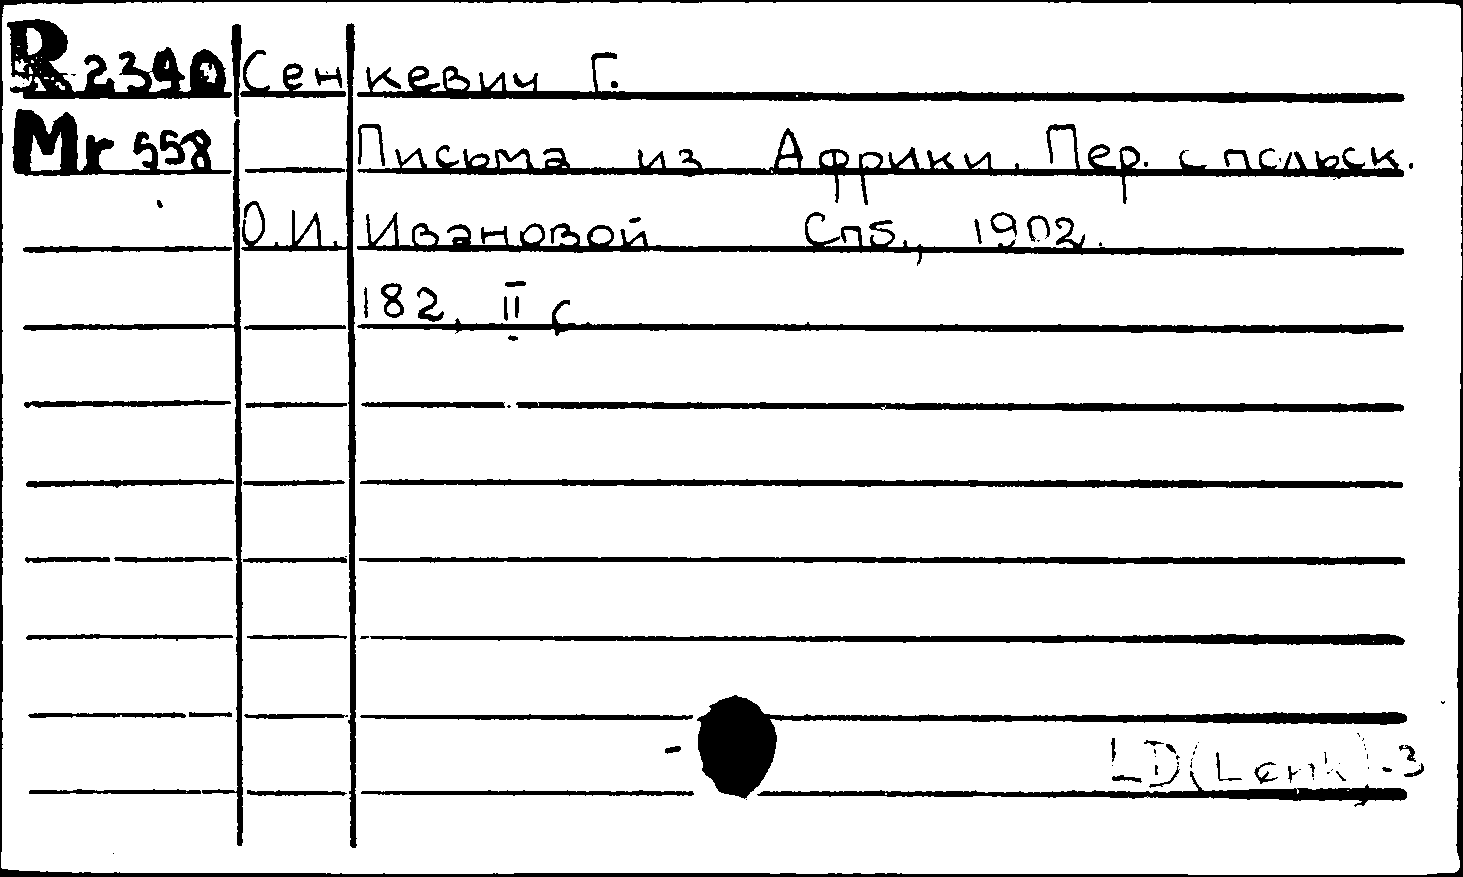 R 2390 Сенкевич Г.
Mr 558 Письма из Африки. Пер. с польск.
О.И. Ивановой Спб., 1902.
182, II с
LD(Lenk)-3